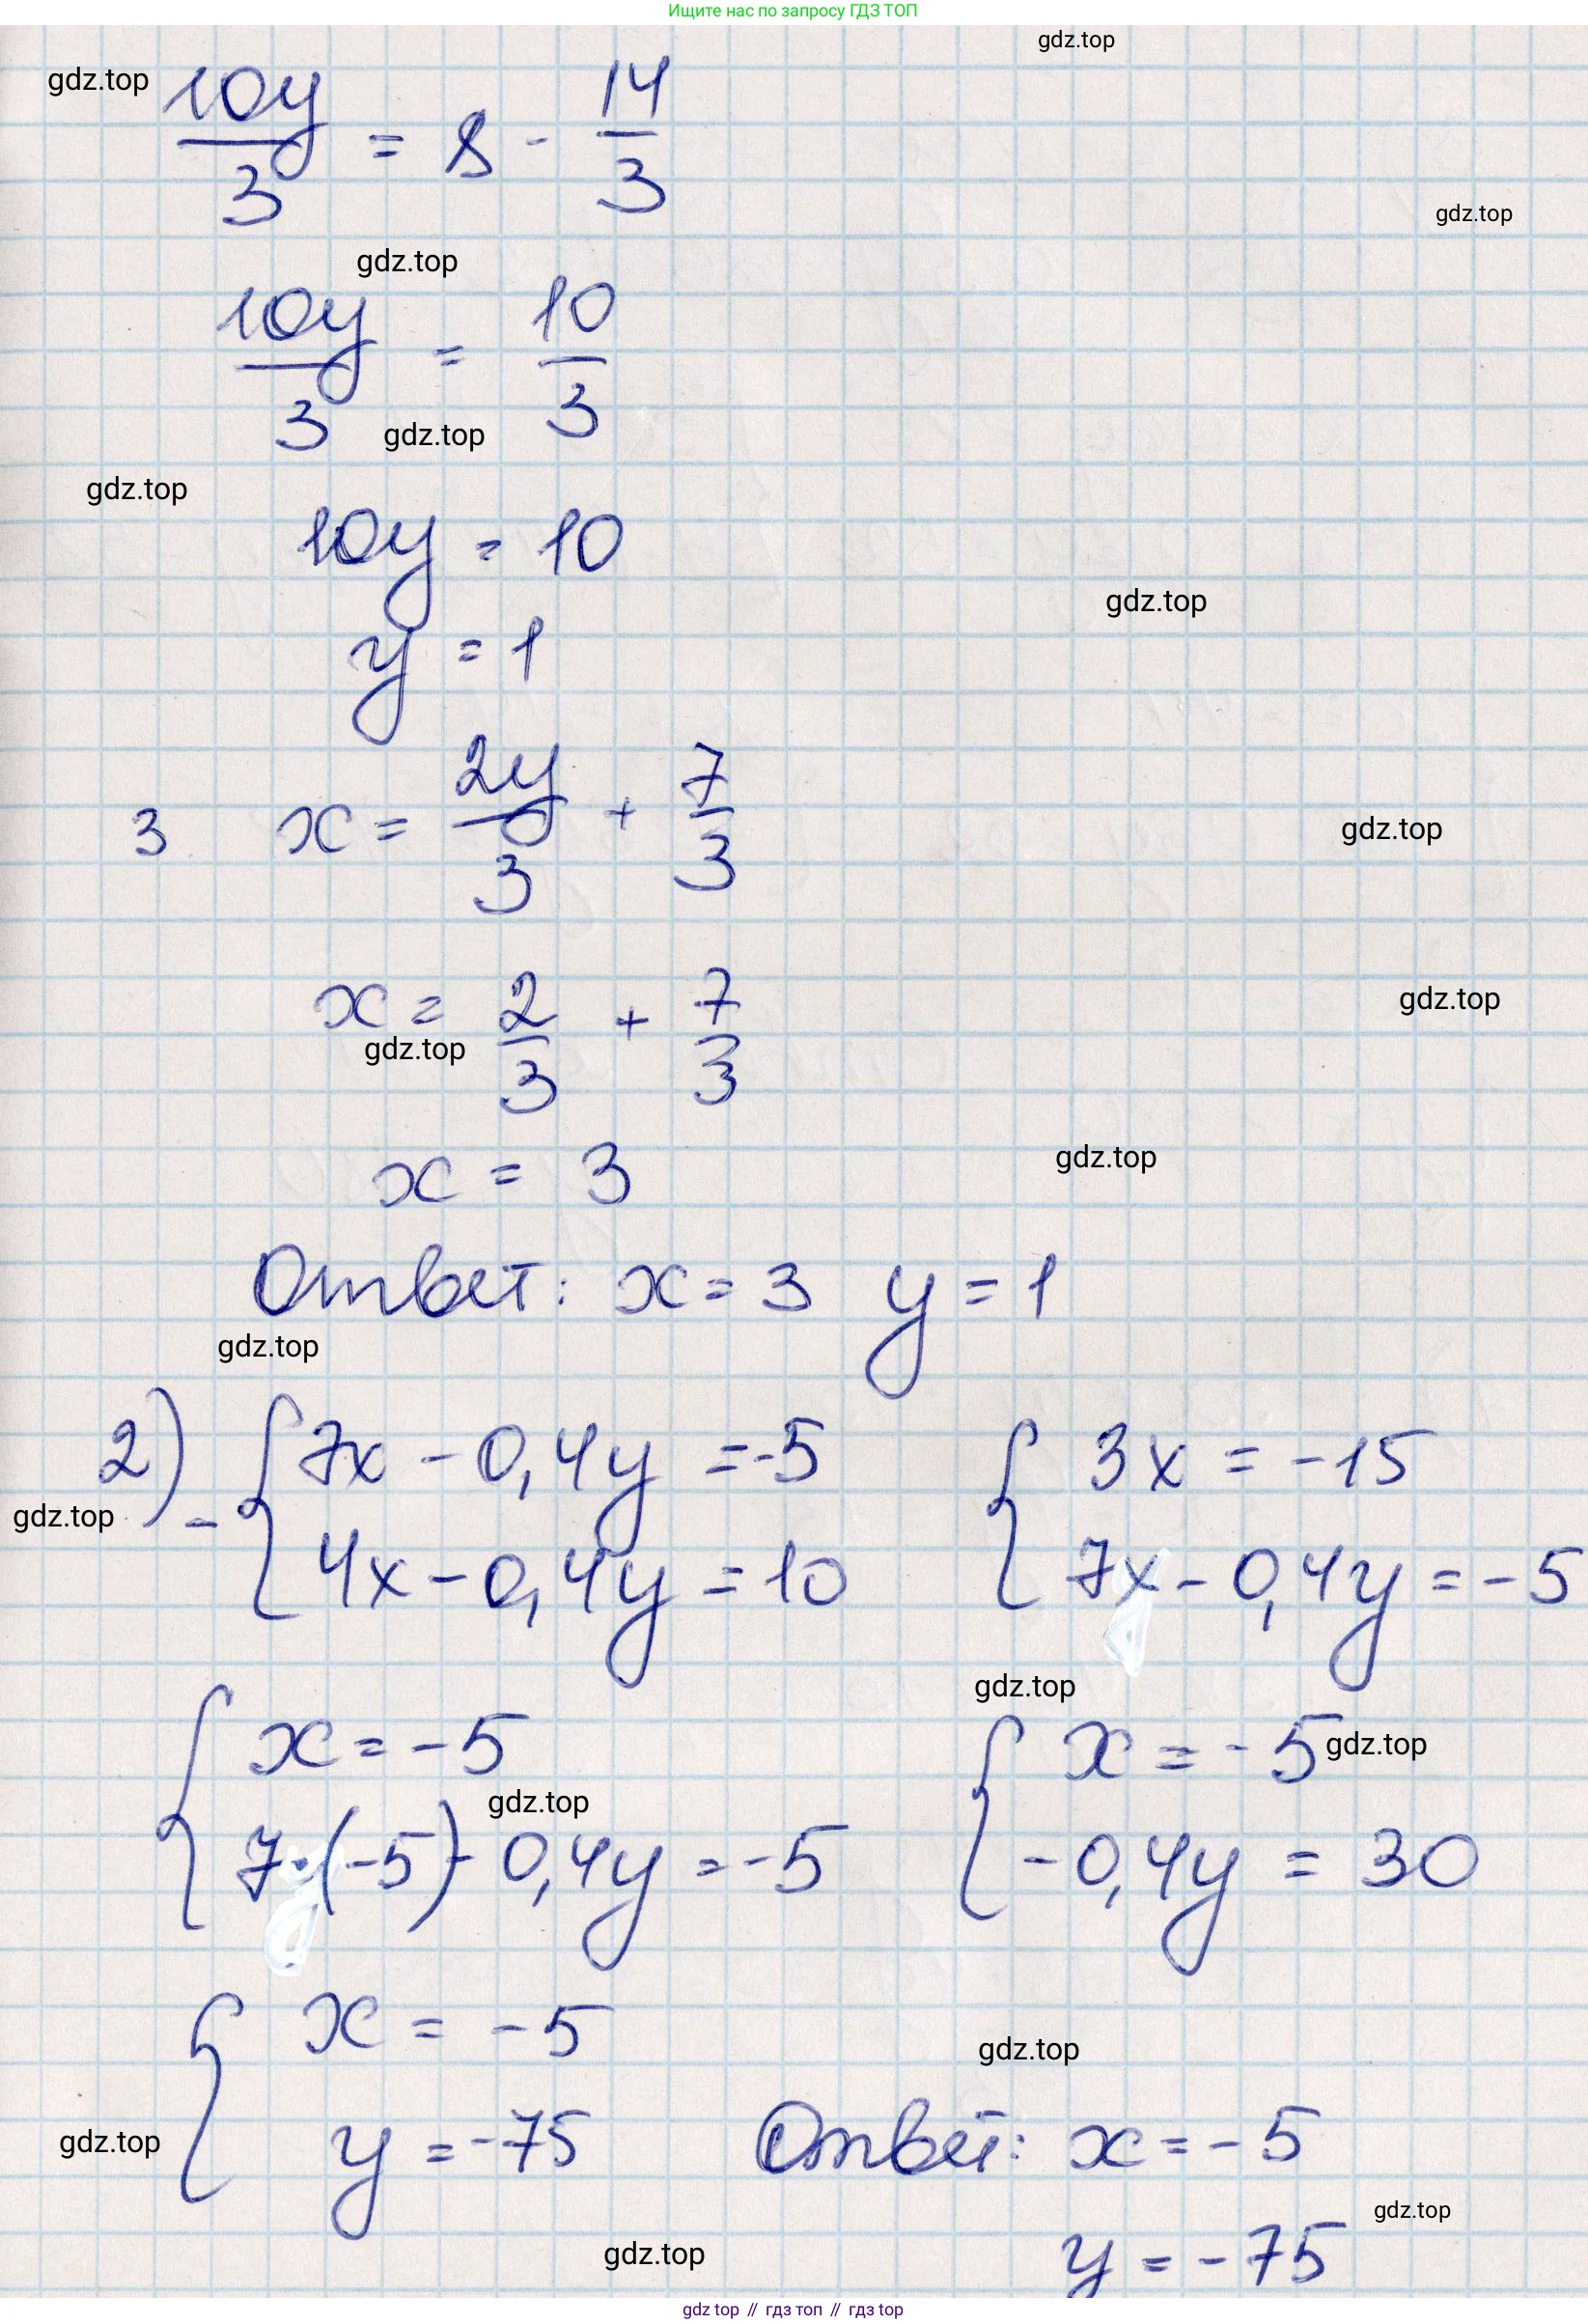 Ищите нас по запросу ГДЗ ТОП
gdz.top
gdz.top
10y/3 = 8 - 14/3
gdz.top
gdz.top
10y/3 = 10/3
gdz.top
gdz.top
10y = 10
gdz.top
y = 1
3 x = 2y/3 + 7/3
gdz.top
x = 2/3 + 7/3
gdz.top
gdz.top
x = 3
gdz.top
Ответ: x = 3 y = 1
gdz.top
2) - { 7x - 0,4y = -5 { 3x = -15
gdz.top
4x - 0,4y = 10 7x - 0,4y = -5
gdz.top
{ x = -5 { x = -5
gdz.top
gdz.top
7·(-5) - 0,4y = -5 -0,4y = 30
{ x = -5
gdz.top
gdz.top
y = -75 Ответ: x = -5
gdz.top
gdz.top
y = -75
gdz top // гдз топ // гдз top